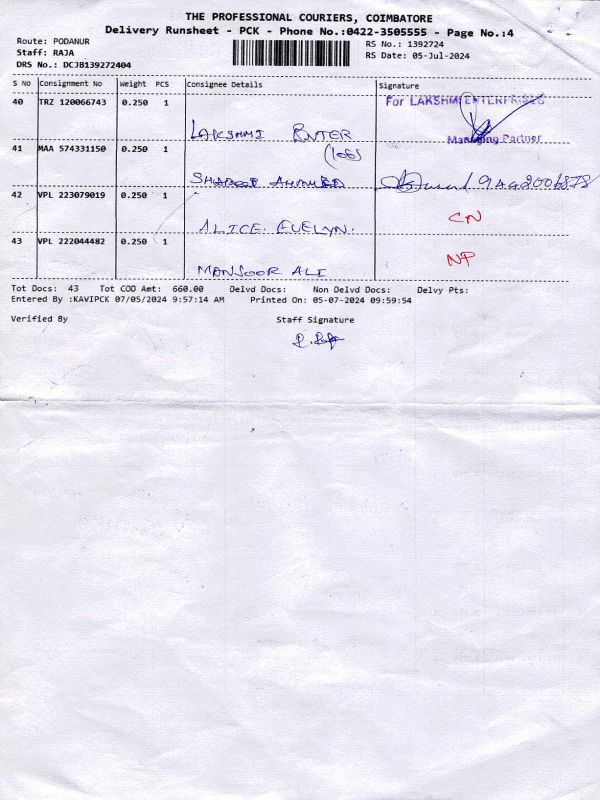 THE PROFESSIONAL COURIERS, COIMBATORE
Delivery Runsheet - PCK - Phone No.:0422-3505555 - Page No.:4
Route: PODANUR
Staff: RAJA
DRS No.: DCJB139272404
RS No.: 1392724
RS Date: 05-Jul-2024
S No Consignment No Weight PCS Consignee Details Signature
40 TRZ 120066743 0.250 1 For LAKSHMI ENTERPRISES
LAKSHMI ENTER Managing Partner
41 MAA 574331150 0.250 1 (106)
AHAMED
42 VPL 223079019 0.250 1 CN
ALICE. EVELYN.
43 VPL 222044482 0.250 1 NP
MANSOOR ALI
Tot Docs: 43 Tot COD Amt: 660.00 Delvd Docs: Non Delvd Docs: Delvy Pts:
Entered By :KAVIPCK 07/05/2024 9:57:14 AM Printed On: 05-07-2024 09:59:54
Verified By Staff Signature